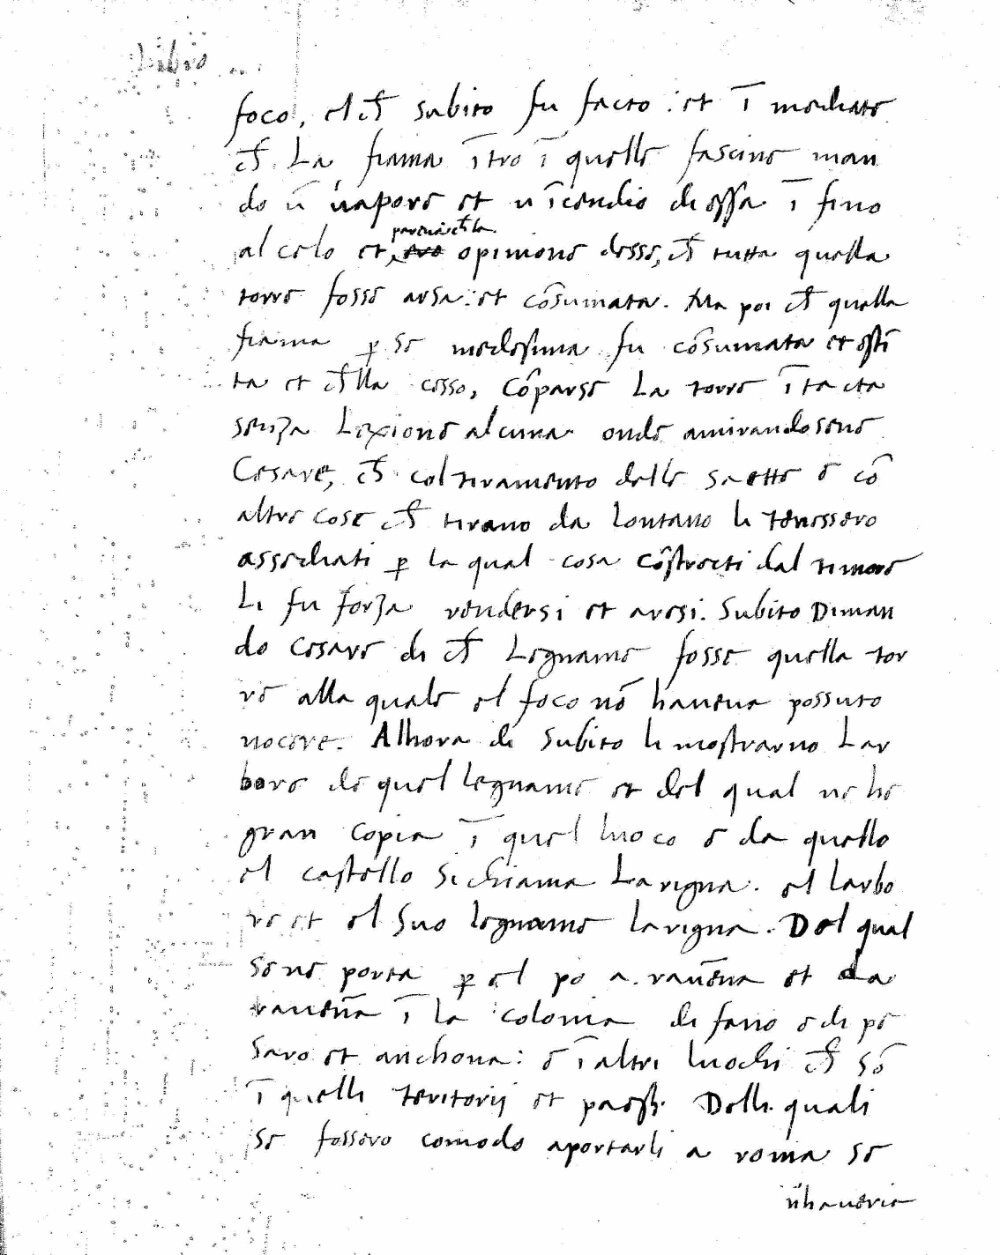 Libro
foco, el ch̄ subito fu facto: et ī mediate
ch̄ La fiama ītro ī quelle fascine man
do ū vapore et u īcendio di essa ī fino
al celo et, parendo ch̄ la
opinione desse, ch̄ tutta quella
torre fosse arsa: et cōsumata. Ma poi ch̄ quella
fiama p se medesima fu cōsumata et esti
ta et ch̄lla cesso, cōparse La torre ītacta
senza Lexione alcuna onde amirandosene
Cesare, ch̄ col tiramento delle saette o cō
altre cose ch̄ tirano da lontano li tenessero
assediati p la qual cosa cōstrecti dal timore
Li fu forza rendersi et aresi. Subito Diman
do Cesare di ch̄ Legname fosse quella tor
re alla quale el foco nō haveva possuto
nocere. Alhora di subito li mostrarno Lar
bore de quel legname et del qual ne he
gran copia ī quel luoco e da quello
el castello si chiama Larigna. el larbo
re et el suo legname larigna. Del qual
se ne porta p el po a ravēna et da
ravēna ī la colonia di fano e di pe
saro et anchona: e ī altri luochi ch̄ sō
ī quelli teritorij et paesi. Delli quali
se fossero comodo aportarli a roma se
n'haveria